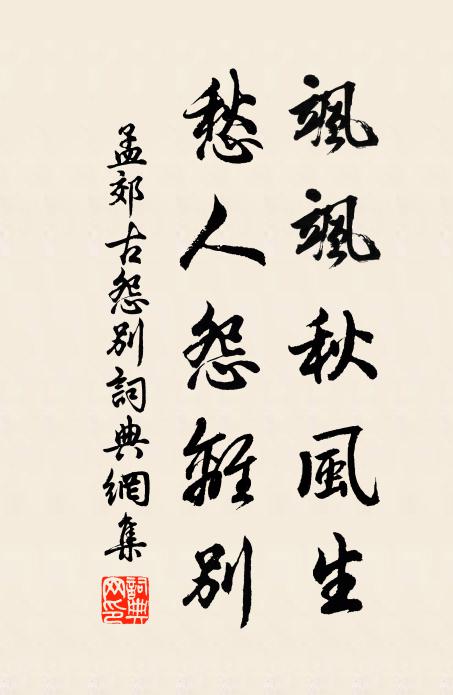 颯颯秋風生
愁人怨離別
孟郊古怨別詞典網集
詞典網印